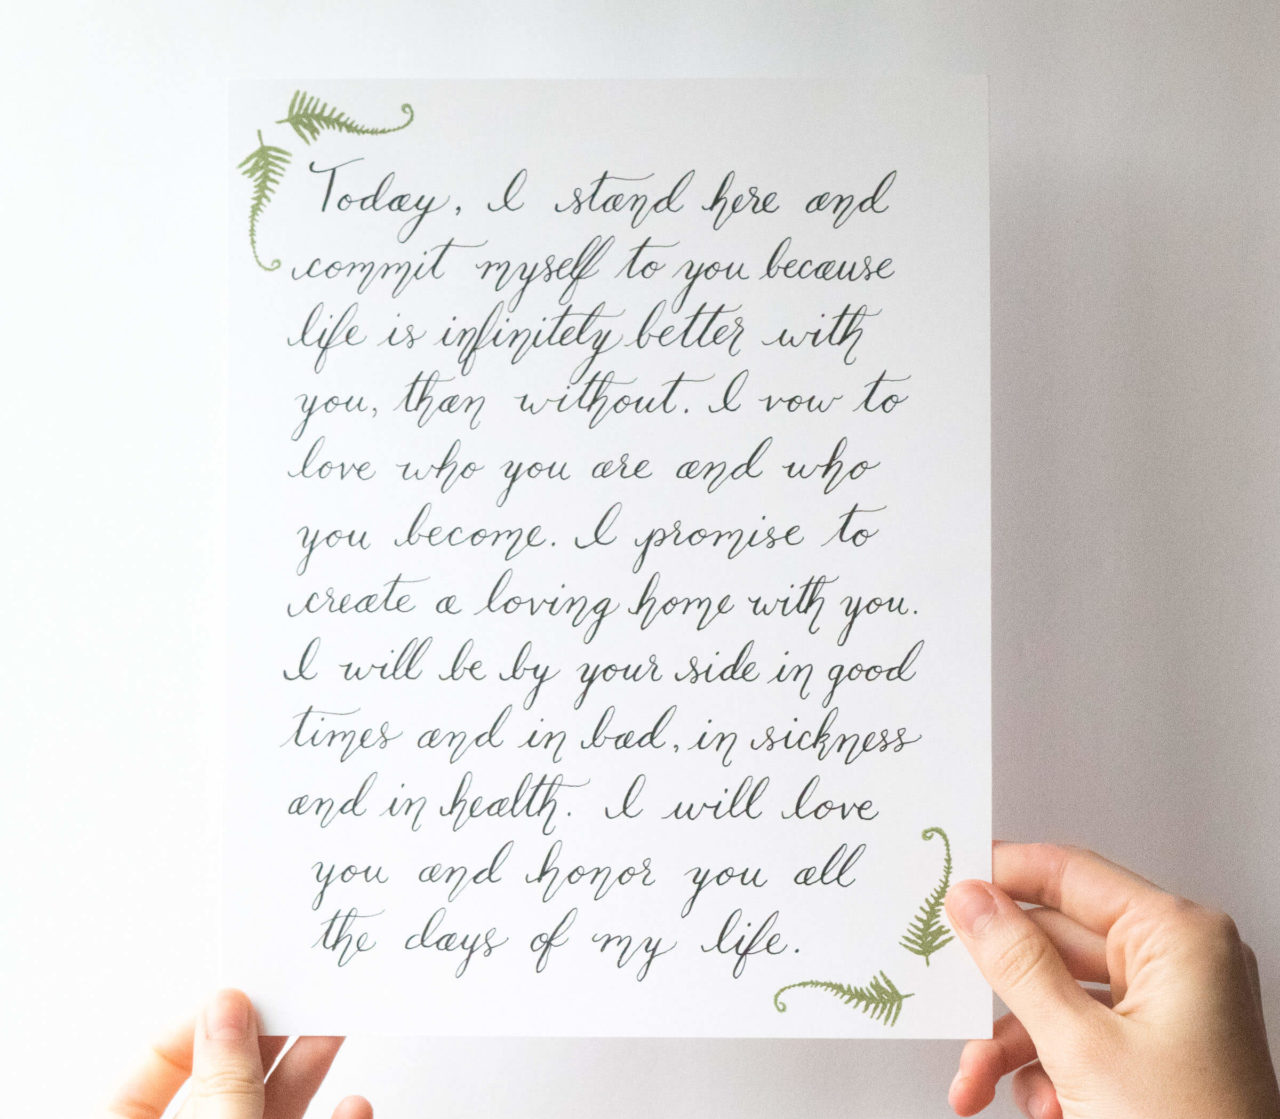 Today, I stand here and
commit myself to you because
life is infinitely better with
you, than without. I vow to
love who you are and who
you become. I promise to
create a loving home with you.
I will be by your side in good
times and in bad, in sickness
and in health. I will love
you and honor you all
the days of my life.